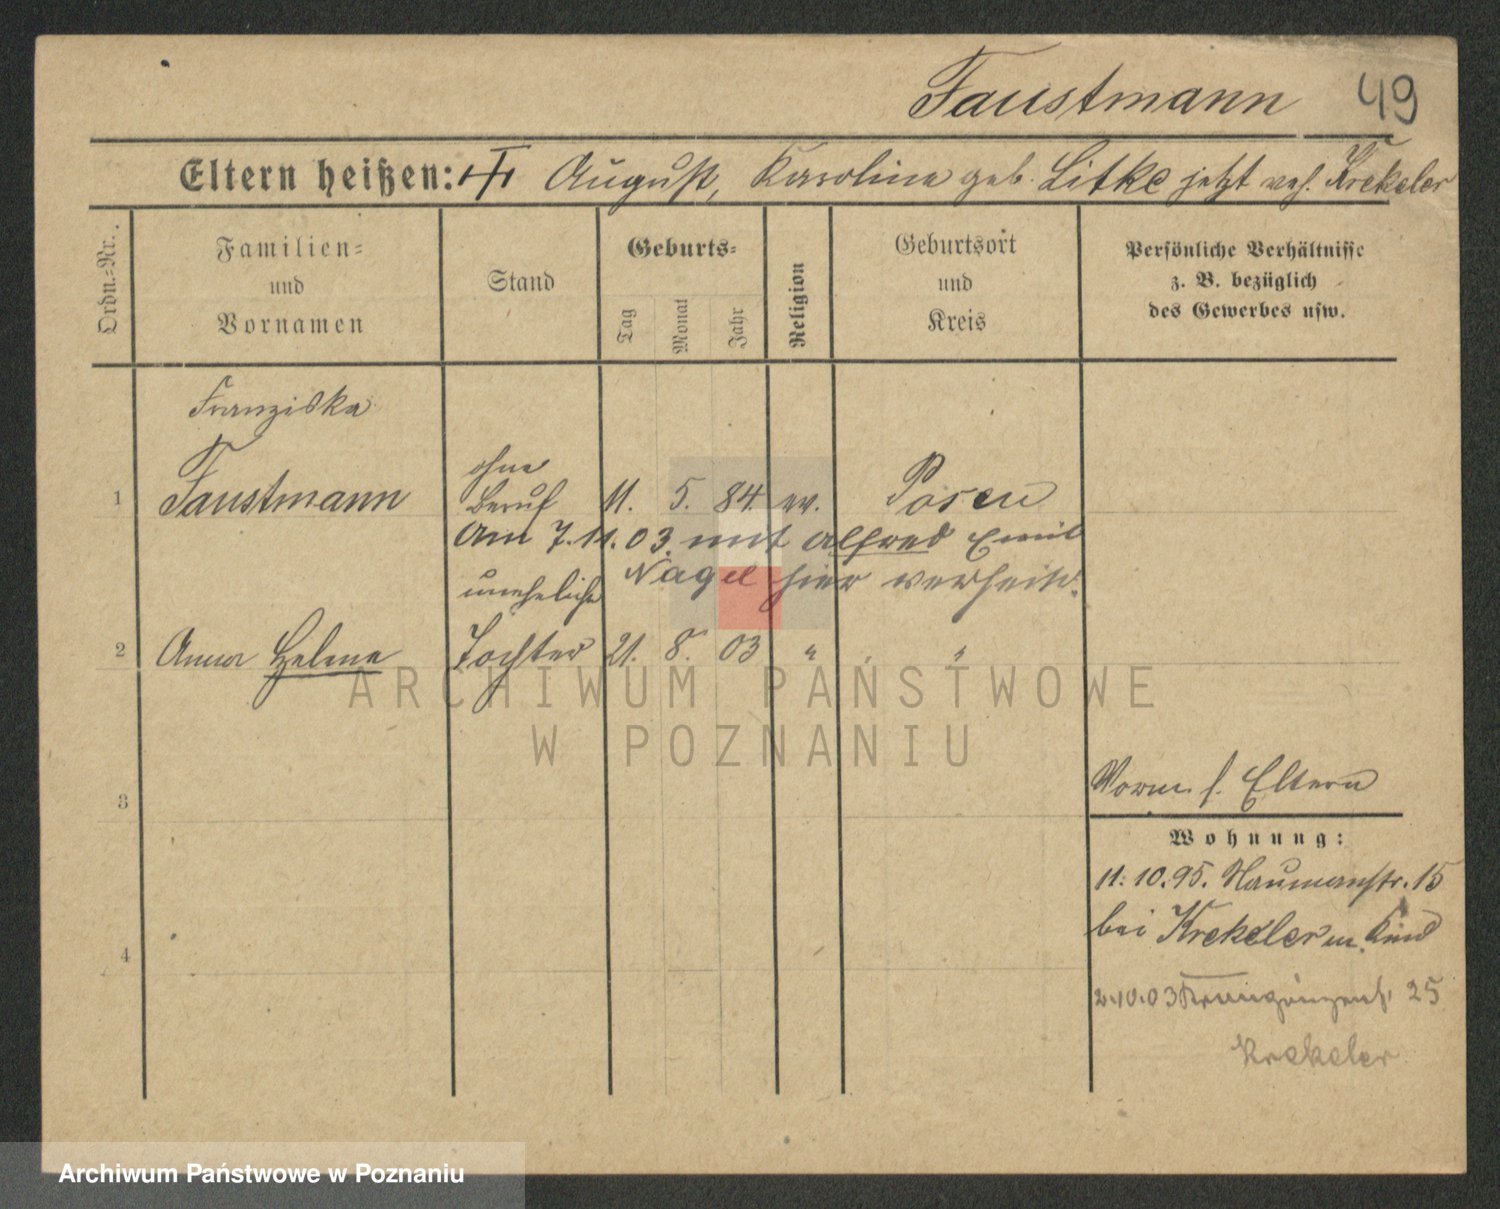 Faustmann 49
Eltern heißen: August, Karoline geb. Litke jetzt veh. Krekeler
Ordn.=Nr.
Familien=
und
Vornamen
Stand
Geburts=
Tag
Monat
Jahr
Religion
Geburtsort
und
Kreis
Persönliche Verhältnisse
z. B. bezüglich
des Gewerbes usw.
Franziska
1 Faustmann ohne
Beruf 11. 5. 84. ev. Posen
Am 7.11.03. mit Alfred Emil
Nagel hier verheir.
uneheliche
2 Anna Helene Tochter 21. 8. 03 " "
3
4
Vorm. s. Eltern
Wohnung:
11.10.95. Naumannstr. 15
bei Krekeler m. Kind
2.10.03 25
Krekeler
ARCHIWUM PAŃSTWOWE
W POZNANIU
Archiwum Państwowe w Poznaniu